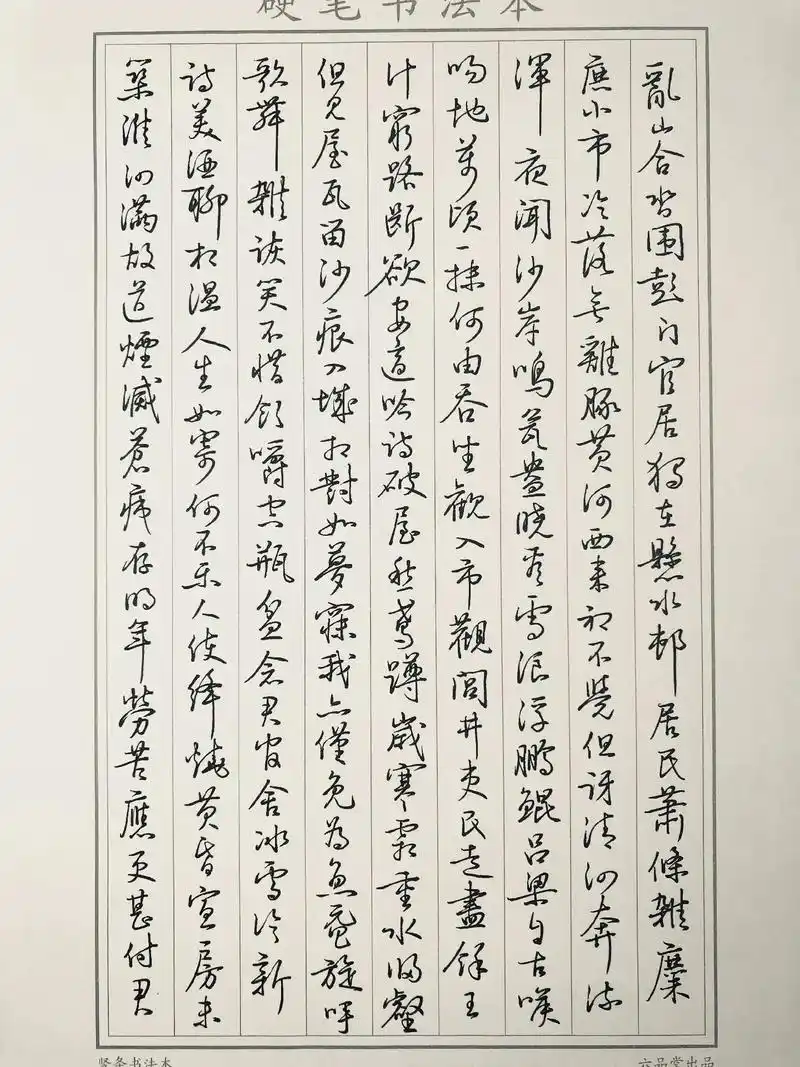 硬笔书法本
亂山合沓围彭门官居獨在懸水邨居民蕭條雜麋
鹿小市冷落无雞豚黄河西来初不覺但訝清泗奔流
渾夜闻沙岸鳴瓮盎曉看雪浪浮鵬鯤吕梁自古喉
吻地萬顷一抹何由吞坐觀入市觀閭井吏民走盡餘王
计窮路断欲安適吟诗破屋愁鳶蹲歲寒霜重水归壑
但见屋瓦留沙痕入城相對如夢寐我亦僅免為魚黿旋呼
歌舞雜诙笑不惜飲嚼空瓶盆念君官舍冰雪冷新
诗美酒聊相温人生如寄何不乐人使绛燒黄昏宣房未
築淮泗滿故道煙滅蒼痍存明年勞苦應更甚付君
竖条书法本
六品堂出品